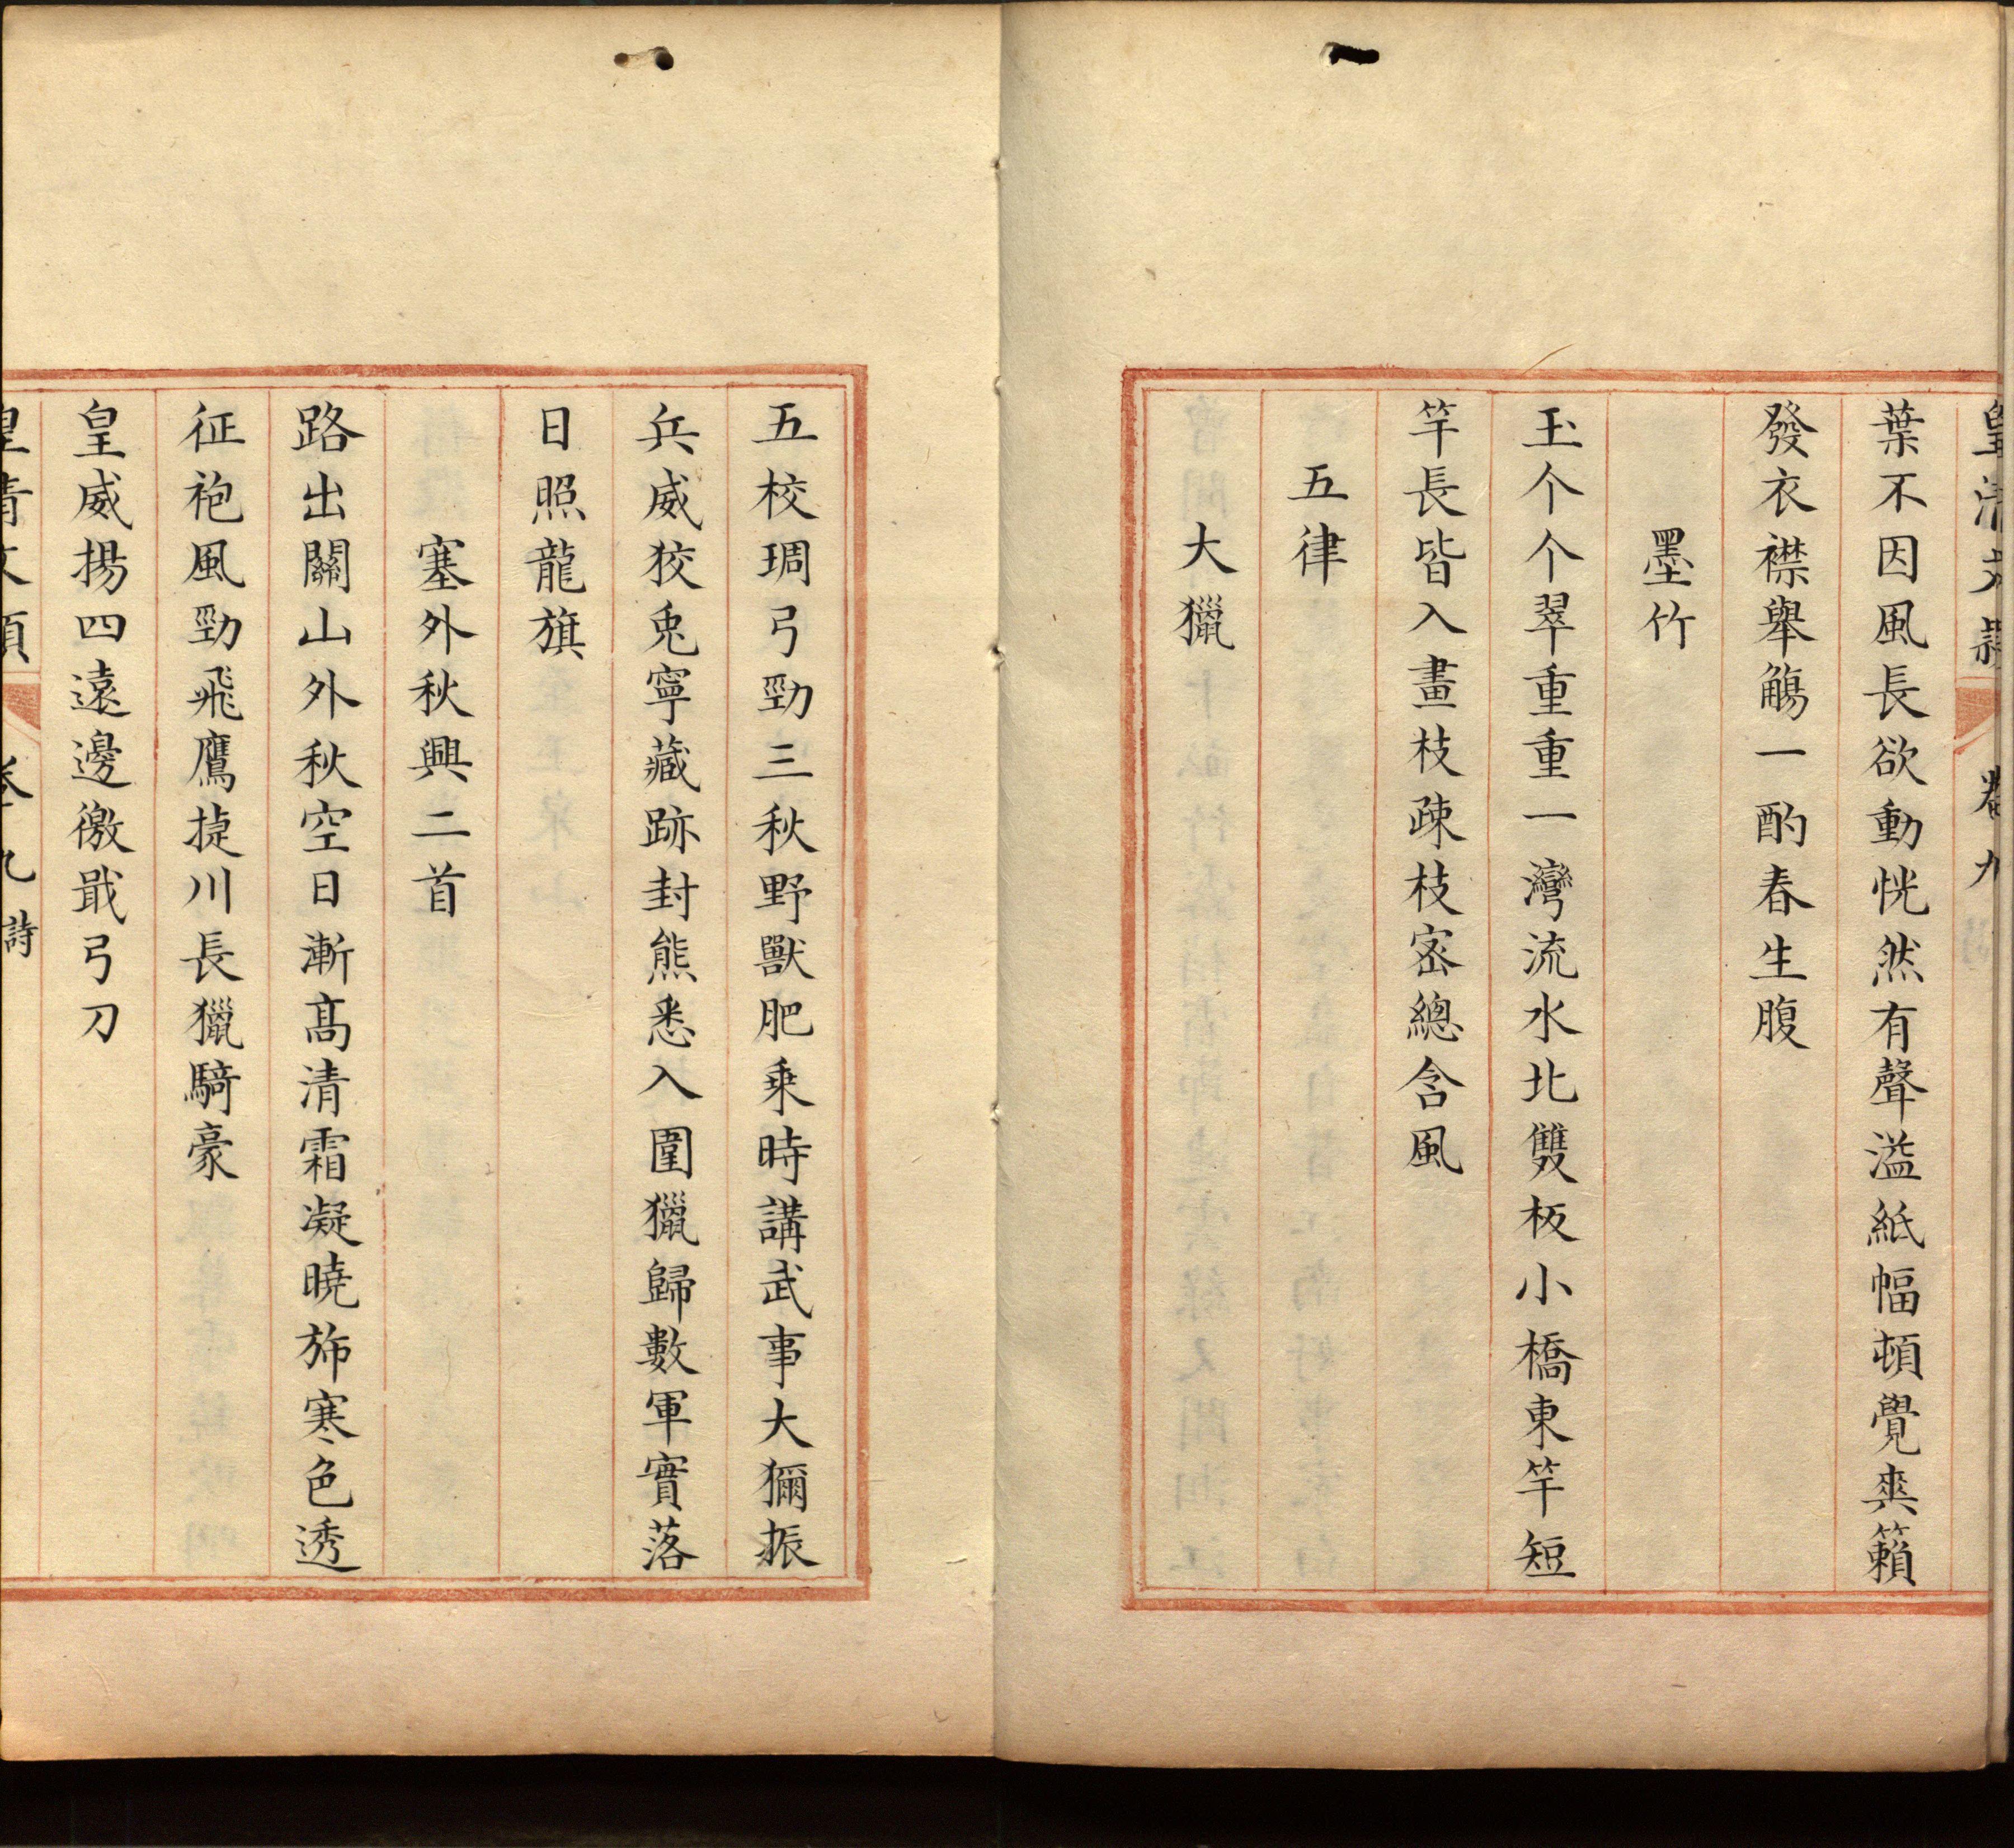 皇清文穎 卷九
葉不因風長欲動恍然有聲溢紙幅頓覺爽籟
發衣襟舉觴一酌春生腹
墨竹
玉个个翠重重一灣流水北雙板小橋東竿短
竿長皆入畫枝疎枝宻總含風
五律
大獵
五校琱弓勁三秋野獸肥乗時講武事大獮振
兵威狡兎寧藏跡封熊悉入圍獵歸數軍實落
日照龍旗
塞外秋興二首
路出關山外秋空日漸髙清霜凝曉斾寒色透
征袍風勁飛鷹㨗川長獵騎豪
皇威揚四遠邊徼戢弓刀
皇清文穎 卷九 詩